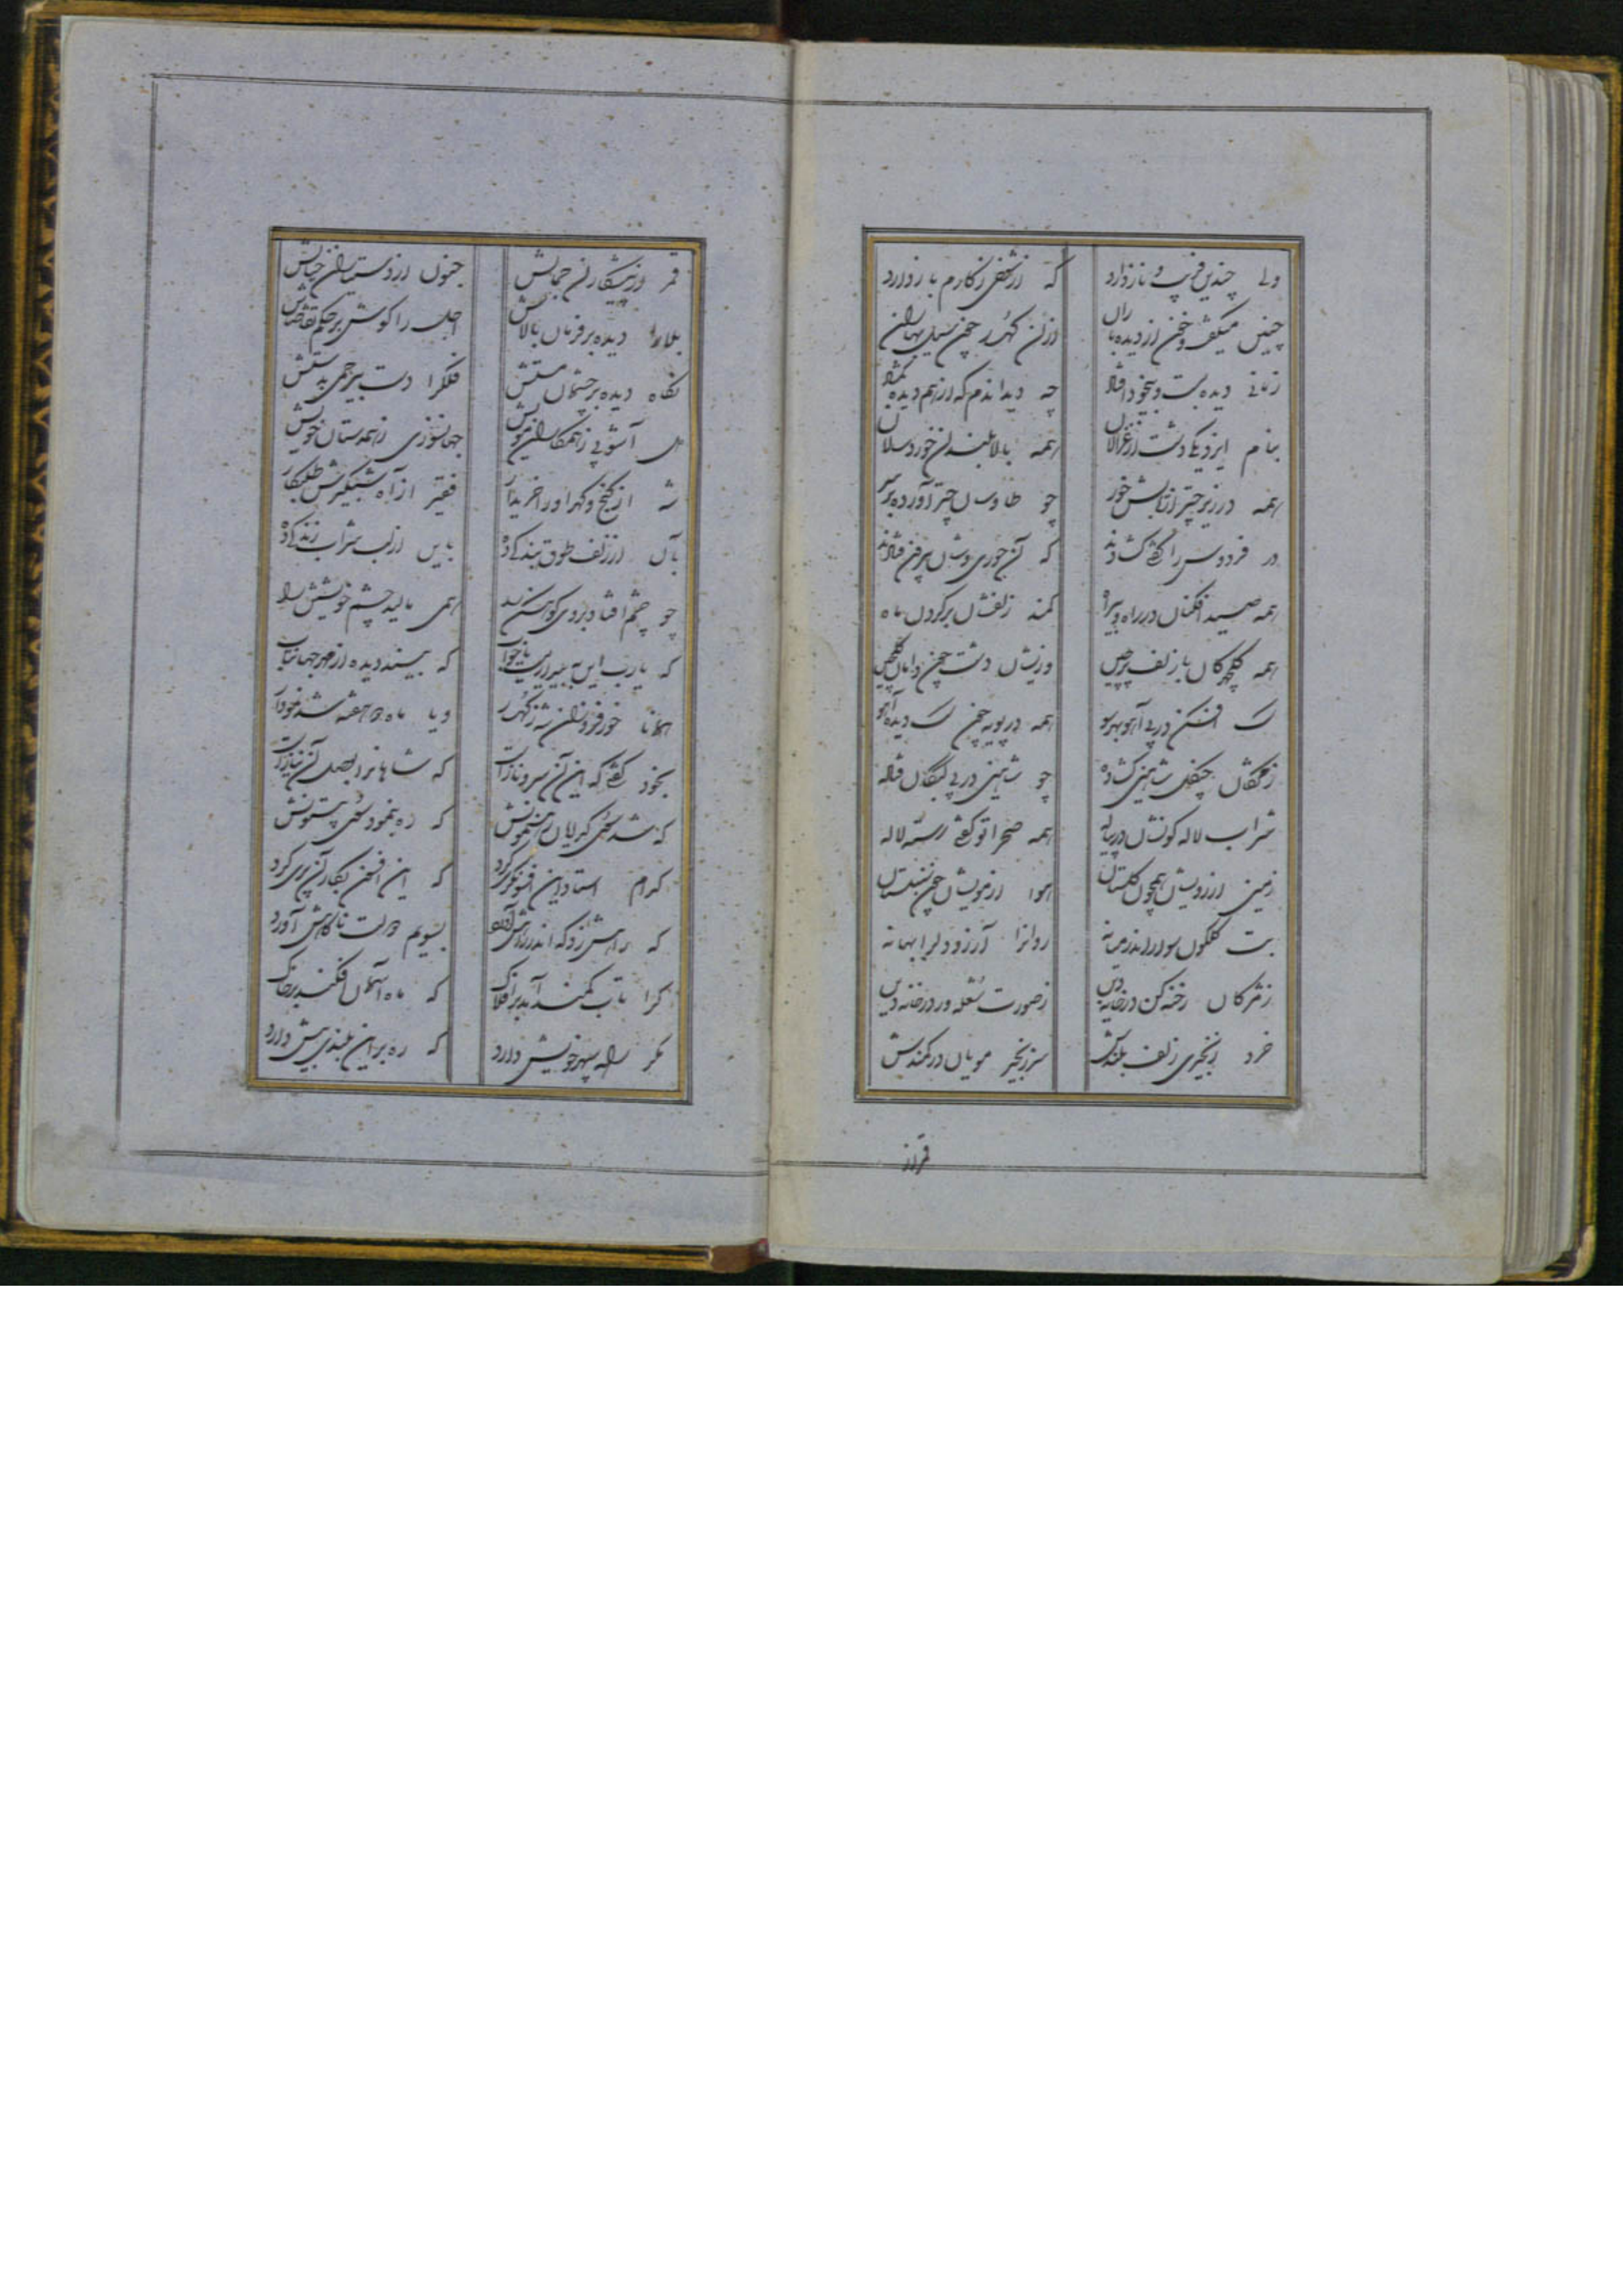 ولی چندین فریب و ناز دارد که از شغل نکارم باز دارد
چنین میگفت و خون از دیده باران ازان کهسار چون سیل بهاران
زمانی دیده بست و بیخود افتاد چه دید اندم که از هم دیده بگشاد
بنام ایزد یکی دشت از غزالان همه بالا بلندان خوردسالان
همه در زیر چتر از تابش خور چو طاوسان چتر آورده بر سر
در فردوس را گفتی گشادند که آن حوری وشان بیرون فتادند
همه صید افکنان در راه و بیراه کمند زلفشان بر گردن ماه
همه گلچهرگان با زلف پرچین وزیشان دشت چون دامان گلچین
سگ افکن در پی آهو بهر سو همه در پویه چون سگ دیده آهو
ز مژگان چنگل شاهین گشاده چو شاهین در پی کبگان فتاده
شراب لاله گونشان در پیاله همه صحرا تو گفتی رسته لاله
زمین از رویشان همچون گلستان هوا از مویشان چون سنبلستان
بت گلگون سوار اندر میانه روانرا آرزو دلرا بهانه
ز مژگان رخنه کن در خانه دین ز صورت شعله ور در خانه زین
خرد زنجیری زلف بلندش سر زنجیر مویان در کمندش
قمر از
قمر از پیشکاران جمالش جنون از دوستیاران خیالش
بلا را دیده بر فرمان بالاش اجل را گوش بر حکم تقاضاش
نگاه دیده بر چشمان مستش فلک را دست بیرحمی بدستش
آشوبی ز همکاران مویش جهانسوزی ز همدستان خویش
شه از گنج و گهر او را خریدار فقیر از آه شبگیرش طلبکار
بآن از زلف طوق بندگی ده باین از لب شراب زندگی ده
چو چشم افتاد بر وی کوهکن را همی مالید چشم خویشتن را
که یارب این به بیداریست یا خواب که بیند دیده از مهر جهانتاب
همانا خور فروزان شد ز کهسار و یا ماه دو هفته شد نمودار
بخود گفتی که این آن سرو ناز است که شاهانرا بوصل آن نیاز است
که شد سوی گریان رهنمونش که ره بنمود سوی بیستونش
کدام استاد این افسونگری کرد که این افسون بکار آن پری کرد
که راهش زد که اندر راهش آورد بسویم دولت ناگاهش آورد
کرا تاب کمند آمد بر افلاک که ماه آسمان افکند بر خاک
مگر راه سپهر خویش دارد که ره بر این بلندی بیش دارد